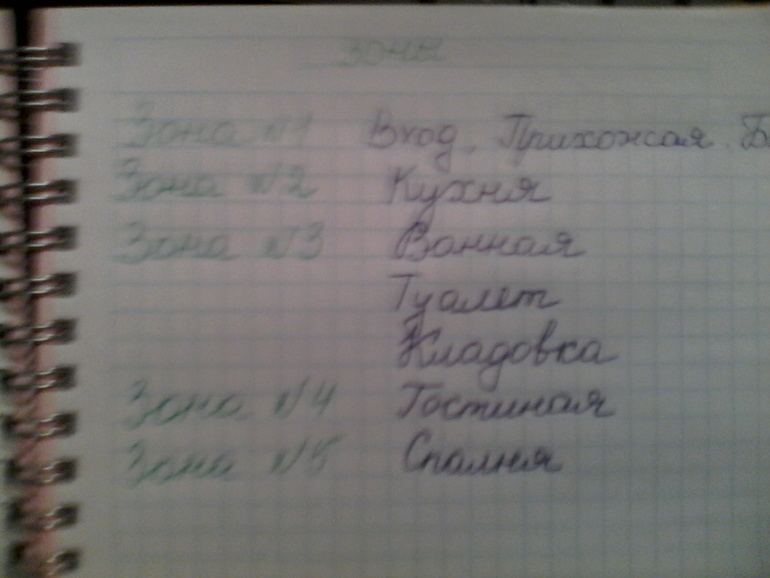 зоны
Зона №1 Вход. Прихожая. Б
Зона №2 Кухня
Зона №3 Ванная
Туалет
Кладовка
Зона №4 Гостиная
Зона №5 Спалня